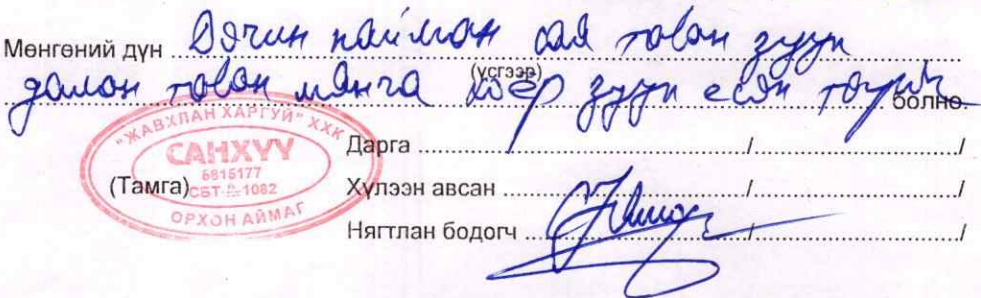 Мөнгөний дүн Дөчин найман сая таван зуун
(үсгээр)
далан таван мянга хоёр зуун есөн төгрөг болно.
"ЖАВХЛАН ХАРГУЙ" ХХК
САНХҮҮ
5815177
СБТ № 1082
ОРХОН АЙМАГ
(Тамга)
Дарга ........../........../
Хүлээн авсан ........../........../
Нягтлан бодогч ........../........../